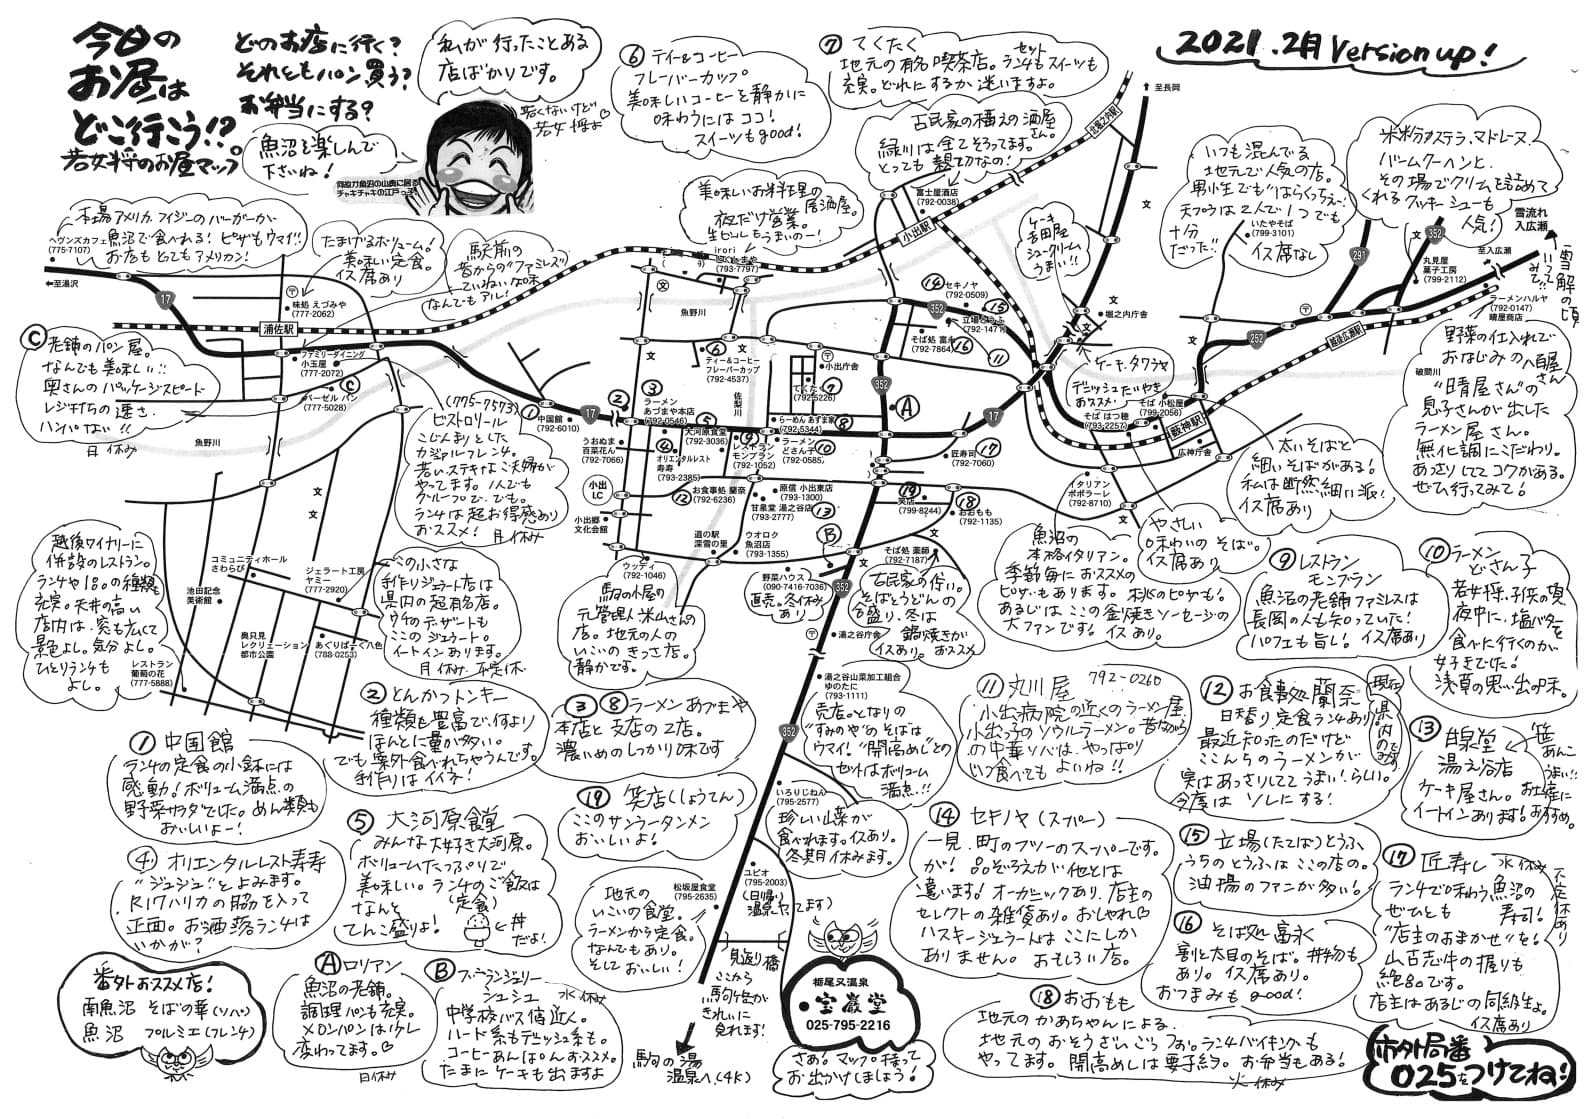 今日の
お昼は
どこ行こう!?。
若女将のお昼マップ
どのお店に行く?
それともパン買う?
お弁当にする?
私が行ったことある
店ばかりです。
若くないけど
若女将よ♡
魚沼を楽しんで
下さいね!
チャキチャキの江戸っ子
2021.2月 Version up!
⑥ ティー&コーヒー
フレーバーカップ。
美味しいコーヒーを静かに
味わうにはココ!
スイーツもgood!
⑦ てくたく
地元の有名喫茶店。ランチセットもスイーツも
充実。どれにするか迷いますよ。
古民家の構えの酒屋さん。
緑川は全てそろってます。
とっても親切なの!
富士屋酒店
(792-0038)
美味しいお料理の
居酒屋。
夜だけ営業。
生ビールもうまいのー!
irori
(793-7797)
ケーキ
吉田屋
シュークリーム
うまい!!
いつも混んでる
地元で人気の店。
男小生でも"はらくっちぇー"
天プラは2人で1つでも
十分
だった!!
いたやそば
(799-3101)
イス席なし
米粉カステラ、マドレーヌ
バームクーヘンと、
その場でクリームを詰めて
くれるクッキーシューも
人気!
丸見屋
菓子工房
(799-2112)
雪流れ
入広瀬
至入広瀬
至長岡
雪解の頃
いってみて!!
ラーメンハルヤ
(792-0147)
晴屋商店
野菜の仕入れで
おなじみの八百屋さん
"晴屋さん"の
息子さんが出した
ラーメン屋さん。
無化調にこだわり。
あっさりしててコクがある。
ぜひ行ってみて!
本場アメリカ、フィジーのバーガーが
魚沼で食べれる!ピザもウマイ!!
お店もとてもアメリカン!
ヘヴンズカフェ
(775-7107)
至湯沢
たまげるボリューム!
美味しい定食。
イス席あり
味処 えづみや
(777-2062)
駅前の
昔からの"ファミレス"
ていねいな味
なんでもアル!
浦佐駅
ファミリーダイニング
小玉屋
(777-2072)
バーゼル パン
(777-5028)
Ⓒ 老舗のパン屋。
なんでも美味しい!!
奥さんのパッケージスピート
レジ打ちの速さ、
ハンパない!!
日休み
(775-7573)
ビストロリール
こじんまりとした
カジュアルフレンチ。
若いステキなご夫婦が
やってます。1人でも
グループで、でも。
ランチは超お得感あり
おススメ! 月休み
越後ワイナリーに
併設のレストラン。
ランチやコースの種類も
充実。天井の高い
店内は、窓も広くて
景色よし。気分よし。
ひとりランチも
よし。
レストラン
葡萄の花
(777-5888)
コミュニティホール
さわらび
池田記念
美術館
ジェラート工房
ヤミー
(777-2920)
奥只見
レクリエーション
都市公園
あぐりぱーく八色
(788-0253)
この小さな
手作りジェラート店は
県内の超有名店。
ウチのデザートも
ここのジェラート。
イートインあります。
月休み、不定休
小出駅
北堀之内駅
越後広瀬駅
藪神駅
魚野川
佐梨川
破間川
中国館
(792-6010)
ラーメン
あづまや本店
(792-0546)
大河原食堂
(792-3036)
うおぬま
百菜花ん
(792-7066)
オリエンタルレスト
寿寿
(793-2385)
レストラン
モンブラン
(792-1052)
ラーメン
どさん子
(792-0585)
らーめん あずま家
(792-5344)
ティー&コーヒー
フレーバーカップ
(792-4537)
小出庁舎
てくたく
(792-5226)
セキノヤ
(792-0509)
立場とうふ
(792-1471)
そば処 富永
(792-7864)
匠寿司
(792-7060)
お食事処 蘭奈
(792-6236)
原信 小出東店
(793-1300)
甘泉堂 湯之谷店
(793-2777)
笑店
(799-8244)
おおもも
(792-1135)
小出
I.C
小出郷
文化会館
道の駅
深雪の里
ウオロク
魚沼店
(793-1355)
ウッディ
(792-1046)
野菜ハウス
(090-7416-7036)
直売。冬休み
あり
そば処 薬師
(792-7187)
古民家の佇い。
そばとうどんの
合盛り、冬は
鍋焼きが
おススメ
イスあり。
湯之谷庁舎
湯之谷山菜加工組合
ゆのたに
(793-1111)
売店。となりの
"すみのや"のそばは
ウマイ!"開高め"との
セットはボリューム
満点!!
いろりじねん
(795-2577)
珍しい山菜が
食べれます。イスあり。
冬期休みます。
ユピオ
(795-2003)
(日帰り
温泉やってます)
松坂屋食堂
(795-2635)
地元の
いこいの食堂。
ラーメンから定食。
なんでもあり。
そしておいしい!
見返り橋
ここから
駒ケ岳が
きれいに
見れます!
駒の湯
温泉へ(4K)
栃尾又温泉
宝巌堂
025-795-2216
さあ!マップ持って
お出かけしましょう!
堀之内庁舎
ケーキ、タワラヤ
デニッシュたいやき
おススメ
そば はつ穂
(793-2257)
そば 小松屋
(799-2056)
広神庁舎
イタリアン
ポポラーレ
(792-8710)
魚沼の
本格イタリアン。
季節毎におススメの
ピザもあります。桃のピザも。
あるじはここの釜焼きソーセージの
大ファンです。イスあり。
やさしい
味わいのそば。
イス席あり
太いそばと
細いそばがある!
私は断然細い派!
イス席あり
駒の小屋の
元管理人米山さんの
店。地元の人の
いこいのきっさ店。
静かです。
① 中国館
ランチの定食の小鉢には
感動!ボリューム満点の
野菜サラダでした。めん類も
おいしいよー!
② とんかつトンキー
種類も豊富で、何より
ほんとに量が多い。
でも案外食べれちゃうんです。
手作りはイイネ!
③⑧ ラーメンあづまや
本店と支店の2店。
濃いめのしっかり味です
④ オリエンタルレスト寿寿
"ジュジュ"とよみます。
R17ハリカの脇を入って
正面。お洒落ランチは
いかが?
⑤ 大河原食堂
みんな大好き大河原。
ボリュームたっぷりで
美味しい。ランチのご飯は
なんと(定食)
てんこ盛りよ!
丼
だよ!
⑨ レストラン
モンブラン
魚沼の老舗ファミレスは
長岡の人も知っていた!
パフェも旨し! イス席あり
⑩ ラーメン
どさん子
若女将、子供の頃
夜中に、塩バターを
食べに行くのが
大好きでした!
浅草の思い出の味。
⑪ 丸川屋 792-0260
小出病院の近くのラーメン屋
小出っ子のソウルラーメン。昔ながら
の中華ソバは、やっぱり
いつ食べてもよいね!!
⑫ お食事処 蘭奈
日替り定食ランチあり。
最近知ったのだけど
ここんちのラーメンが
実はあっさりしててうまい!らしい。
今度はソレにする!
⑬ 甘泉堂
湯之谷店
ケーキ屋さん。
イートインあります!
笹あんこ
うまい!!
お土産に
おすすめ。
⑭ セキノヤ(スーパー)
一見、町のフツーのスーパーです。
が!品ぞろえが他とは
違います!オーガニックあり、店主の
セレクトの雑貨あり。おしゃれ♡
ハスキージェラートはここにしか
ありません。おもしろい店。
⑮ 立場(たてば)とうふ
うちのとうふはここの店の。
油揚のファンが多い!
⑯ そば処 富永
割と太目のそば。丼物も
あり。イス席あり。
おつまみもgood!
⑰ 匠寿し 水休み
不定休あり
ランチで味わう魚沼の
ぜひとも 寿司!
"店主のおまかせ"を!
山古志牛の握りも
絶品です。
店主はあるじの同級生よ。
イス席あり
⑱ おおもも
地元のかあちゃんによる
地元のおそうざいごっつぉ。ランチバイキングも
やってます。開高めしは要予約。お弁当もある!
火休み
⑲ 笑店(しょうてん)
ここのサンラータンメン
おいしいよ!
番外おススメ店!
南魚沼 そばの華(ソバ)
魚沼 プルミエ(フレンチ)
Ⓐ ロリアン
魚沼の老舗。
調理パンも充実。
メロンパンは少し
変わってます。♡
日休み
Ⓑ ブーランジェリー
シュシュ 水休み
中学校バス停近く。
ハード系もデニッシュ系も。
コーヒーあんぱんおススメ。
たまにケーキも出ますよ
市外局番
025をつけてね!